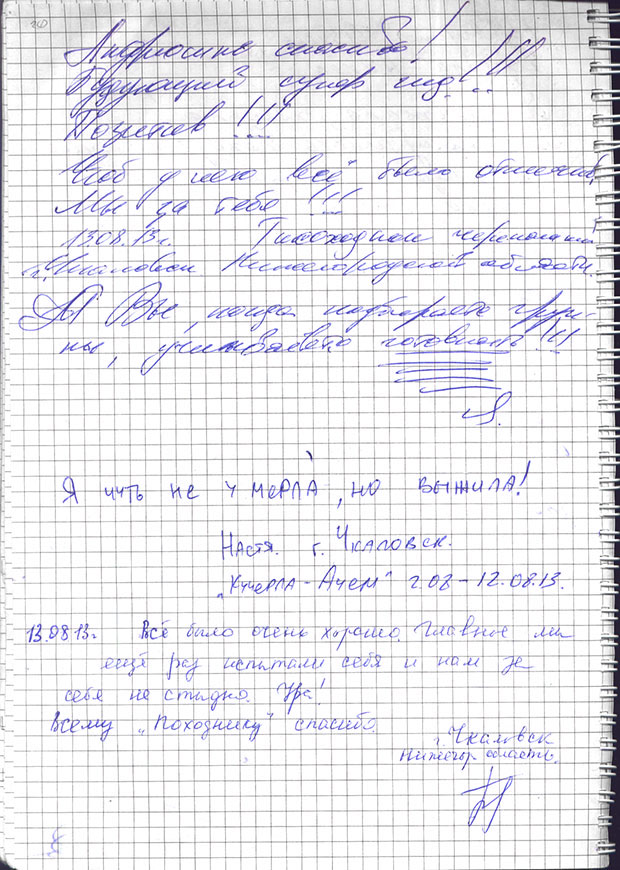 Андрюсику спасибо!
Будующий супер гид!!!
Позитив!!!
Чтоб у него всё было отлично,
Мы за тебя!!!
13.08.13г. Тихоходной черепашки
г. Чкаловск Нижегородской области.
А Вы, когда набираете групп-
пы, учитывайте готовность!!!
Я.
Я чуть не умерла, но выжила!
Настя. г. Чкаловск.
"Кучерла-Аккем" 2.08-12.08.13.
13.08.13г. Всё было очень хорошо. Главное мы
ещё раз испытали себя и нам за
себя не стыдно. Ура!
Всему "Походнику" спасибо.
г. Чкаловск
Нижегор. область.